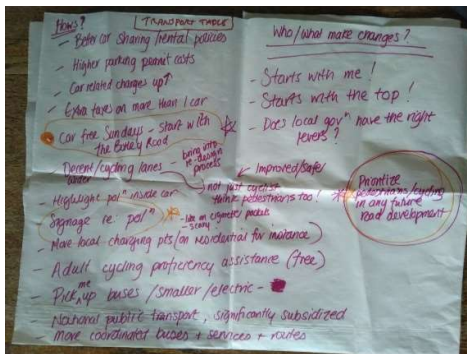 Hows?
TRANSPORT TABLE
- Better car sharing/rental policies
- Higher parking permit costs
- Car related charges up↑
- Extra taxes on more than 1 car
- Car free Sundays - start with
the Botley Road
- Decent/cycling lanes
wider
- bring into
re-design
process
- Highlight poln inside car
- Signage re. poln
- like on cigarette packets
- scary!
- More local charging pts (on residential for instance)
- Adult cycling proficiency assistance (free)
- Pick me up buses/smaller/electric -
- National public transport, significantly subsidized
- More coordinated buses + services + routes
Who/what make changes?
- Starts with me!
- Starts with the top!
- Does local govn have the right
levers?
Improved/Safer
not just cyclist
think pedestrians too!
Prioritize
pedestrians/cycling
in any future
road development